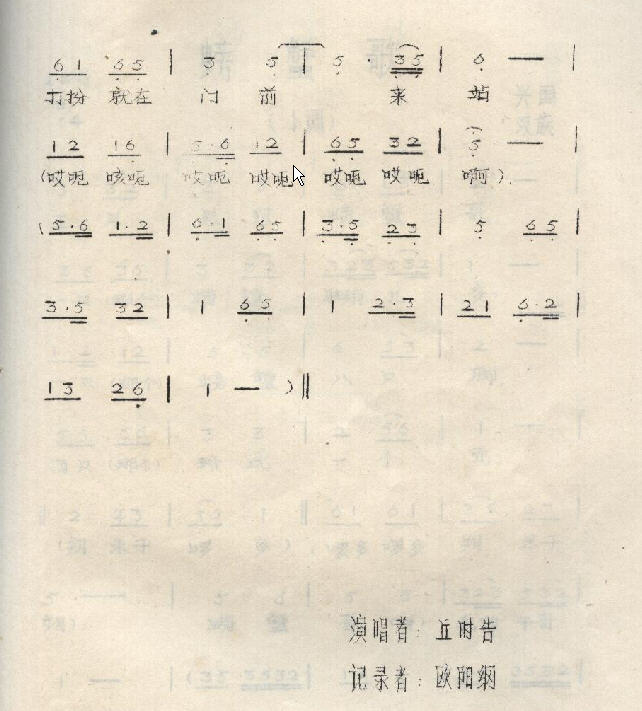 6 1 6 5 | 3 5 | 5 · 3 5 | 6 — |
打扮 就在 门 前 来 站
1 2 1 6 | 5 · 6 1 2 | 6 5 3 2 | 5 —
(哎呃 咳呃 哎呃 哎呃 哎呃 哎呃 啊)
( 5 · 6 1 · 2 | 6 · 1 6 5 | 3 · 5 2 3 | 5 6 5 |
3 · 5 3 2 | 1 6 5 | 1 2 · 3 | 2 1 6 · 2 |
1 3 2 6 | 1 — ) ‖
演唱者：丘时告
记录者：欧阳纲